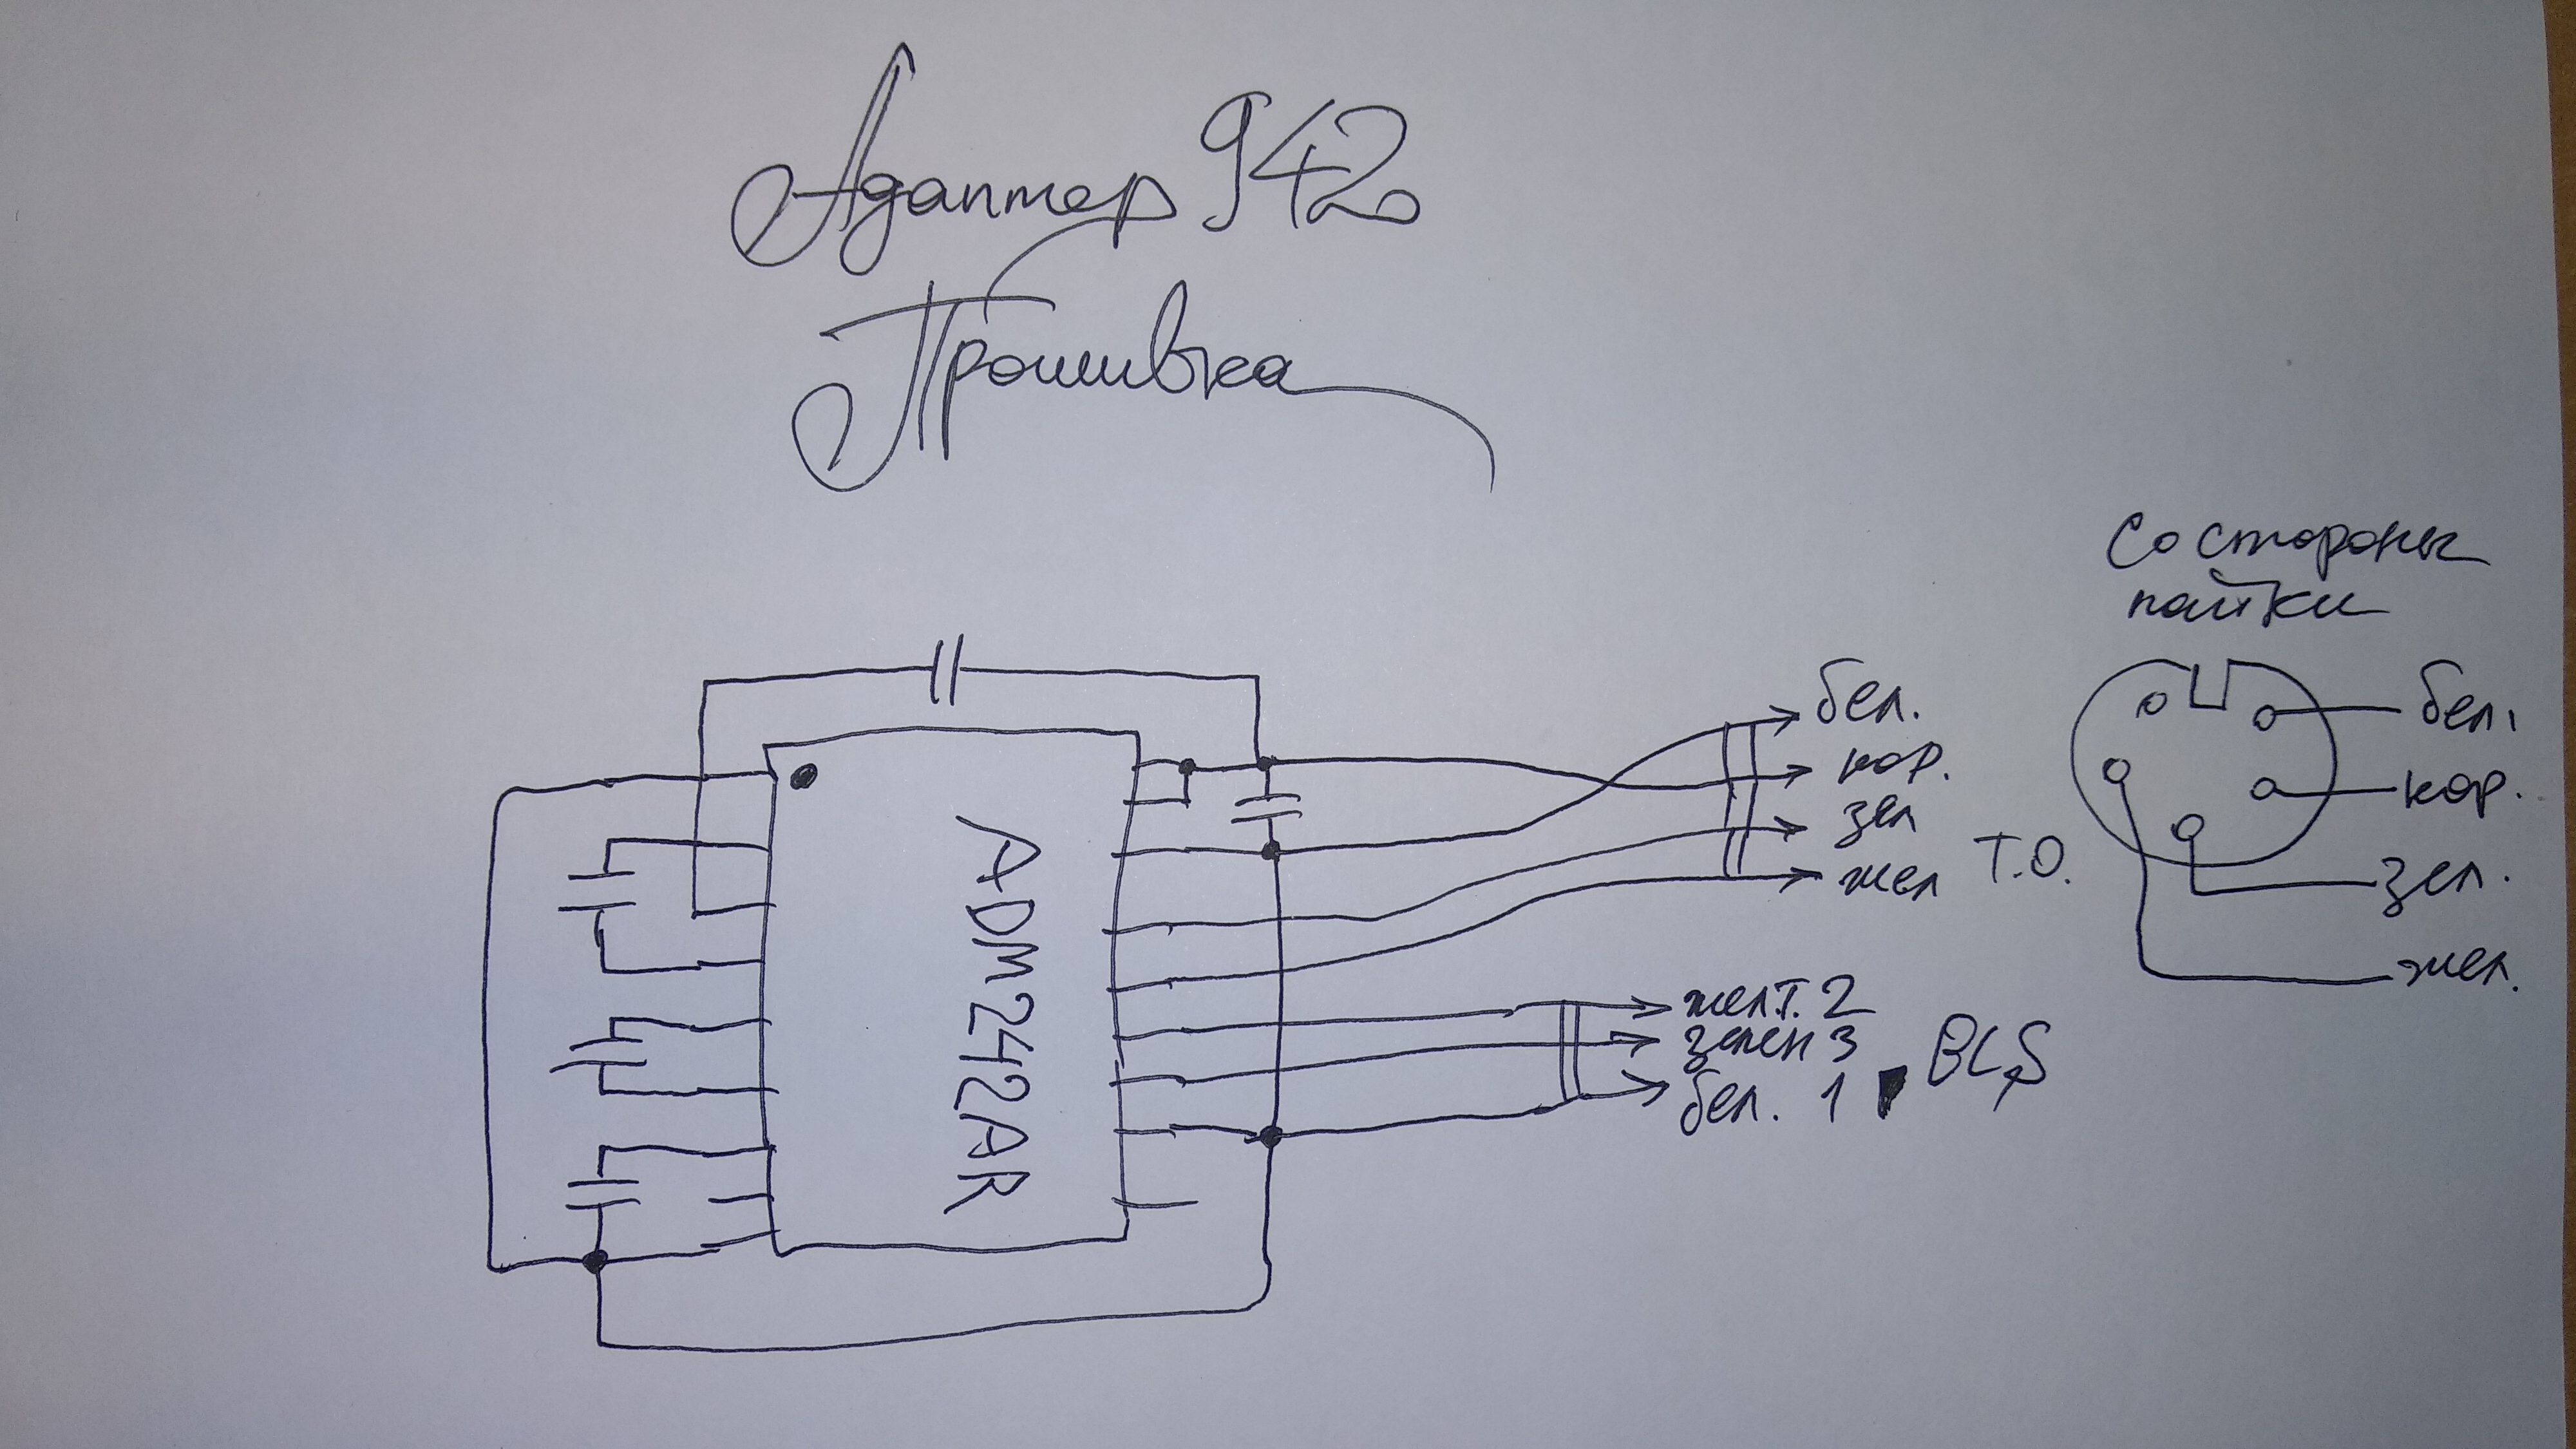 Адаптер 942
Прошивка
ADM242AR
бел.
кор.
зел
жел Т.О.
желт. 2
зелен 3
бел. 1
BLS
Со стороны
пайки
бел.
кор.
зел.
жел.